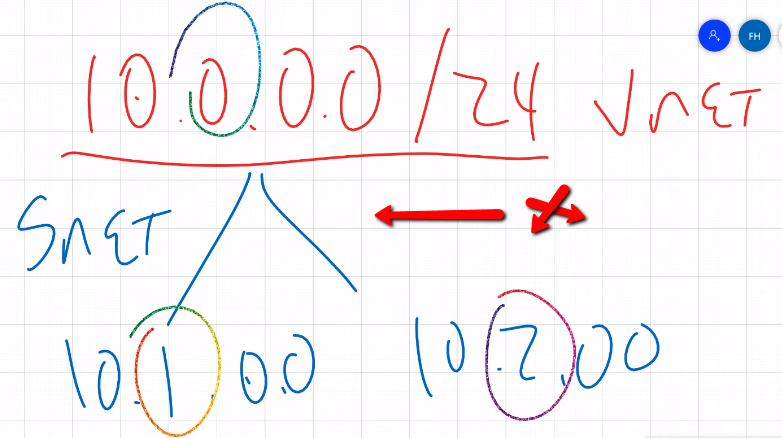 FH
10.0.0.0/24 VNET
SNET
10.1.0.0 10.2.00